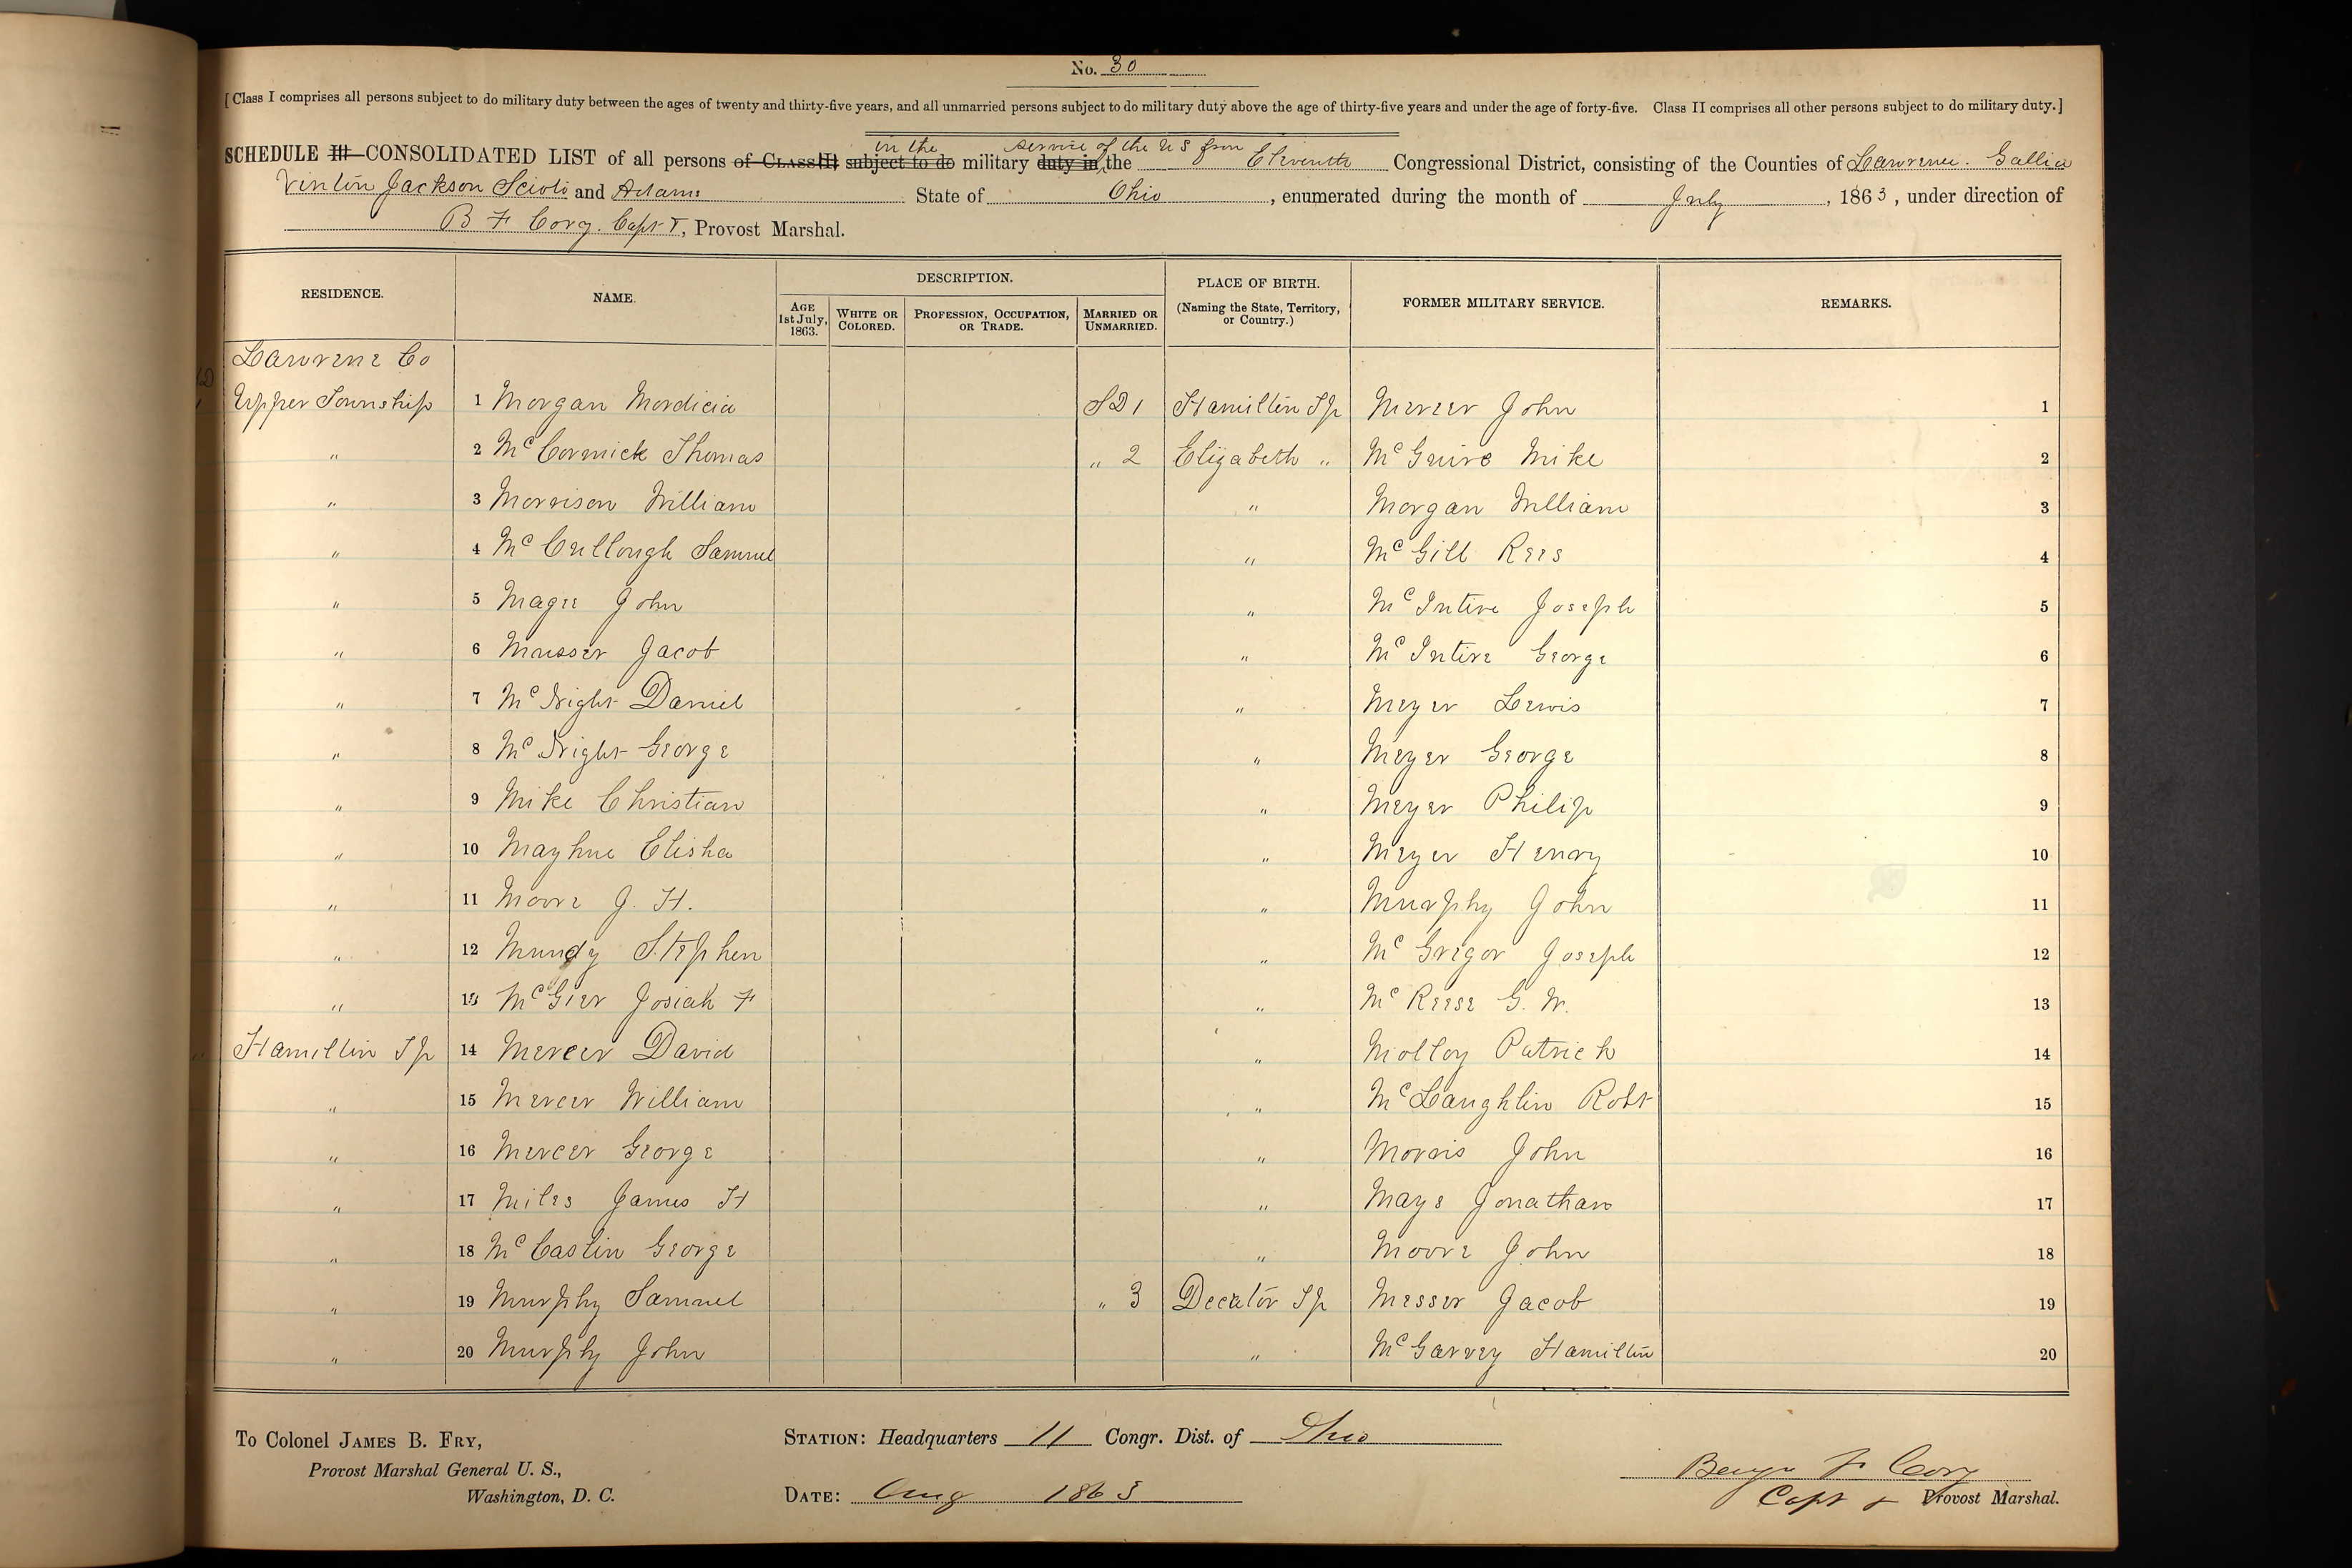 No. 30
[Class I comprises all persons subject to do military duty between the ages of twenty and thirty-five years, and all unmarried persons subject to do military duty above the age of thirty-five years and under the age of forty-five. Class II comprises all other persons subject to do military duty.]
in the service of the U S from
SCHEDULE III—CONSOLIDATED LIST of all persons of Class III subject to do military duty in the Eleventh Congressional District, consisting of the Counties of Lawrence. Gallia
Vinton Jackson Scioto and Adams State of Ohio, enumerated during the month of July, 1863, under direction of
B F Cory. Capt &, Provost Marshal.
RESIDENCE. NAME. DESCRIPTION. PLACE OF BIRTH. (Naming the State, Territory, or Country.) FORMER MILITARY SERVICE. REMARKS.
Age 1st July, 1863. White or Colored. Profession, Occupation, or Trade. Married or Unmarried.
Lawrence Co
Upper Township 1 Morgan Mordicia SD 1 Hamilton Tp Mercer John 1
" 2 McCormick Thomas " 2 Elizabeth " McGuire Mike 2
" 3 Morrison William " Morgan William 3
" 4 McCullough Samuel " McGill Rees 4
" 5 Magee John " McIntire Joseph 5
" 6 Musser Jacob " McIntire George 6
" 7 Mc Daniel " Meyer Lewis 7
" 8 Mc George " Meyer George 8
" 9 Mike Christian " Meyer Philip 9
" 10 Mayhue Elisha " Meyer Henry 10
" 11 Moore J. H. " Murphy John 11
" 12 Mundy Stephen " McGregor Joseph 12
" 13 McGier Josiah F " McReese G. W. 13
" Hamilton Tp 14 Mercer David " Molloy Patrick 14
" 15 Mercer William " McLaughlin Robt 15
" 16 Mercer George " Morris John 16
" 17 Miles James H " Mays Jonathan 17
" 18 McCaslin George " Moore John 18
" 19 Murphy Samuel " 3 Decator Tp Messer Jacob 19
" 20 Murphy John " McGarvey Hamilton 20
To Colonel James B. Fry,
Provost Marshal General U. S.,
Washington, D. C.
Station: Headquarters 11 Congr. Dist. of Ohio
Date: Aug 1863
Benj F Cory
Capt & Provost Marshal.